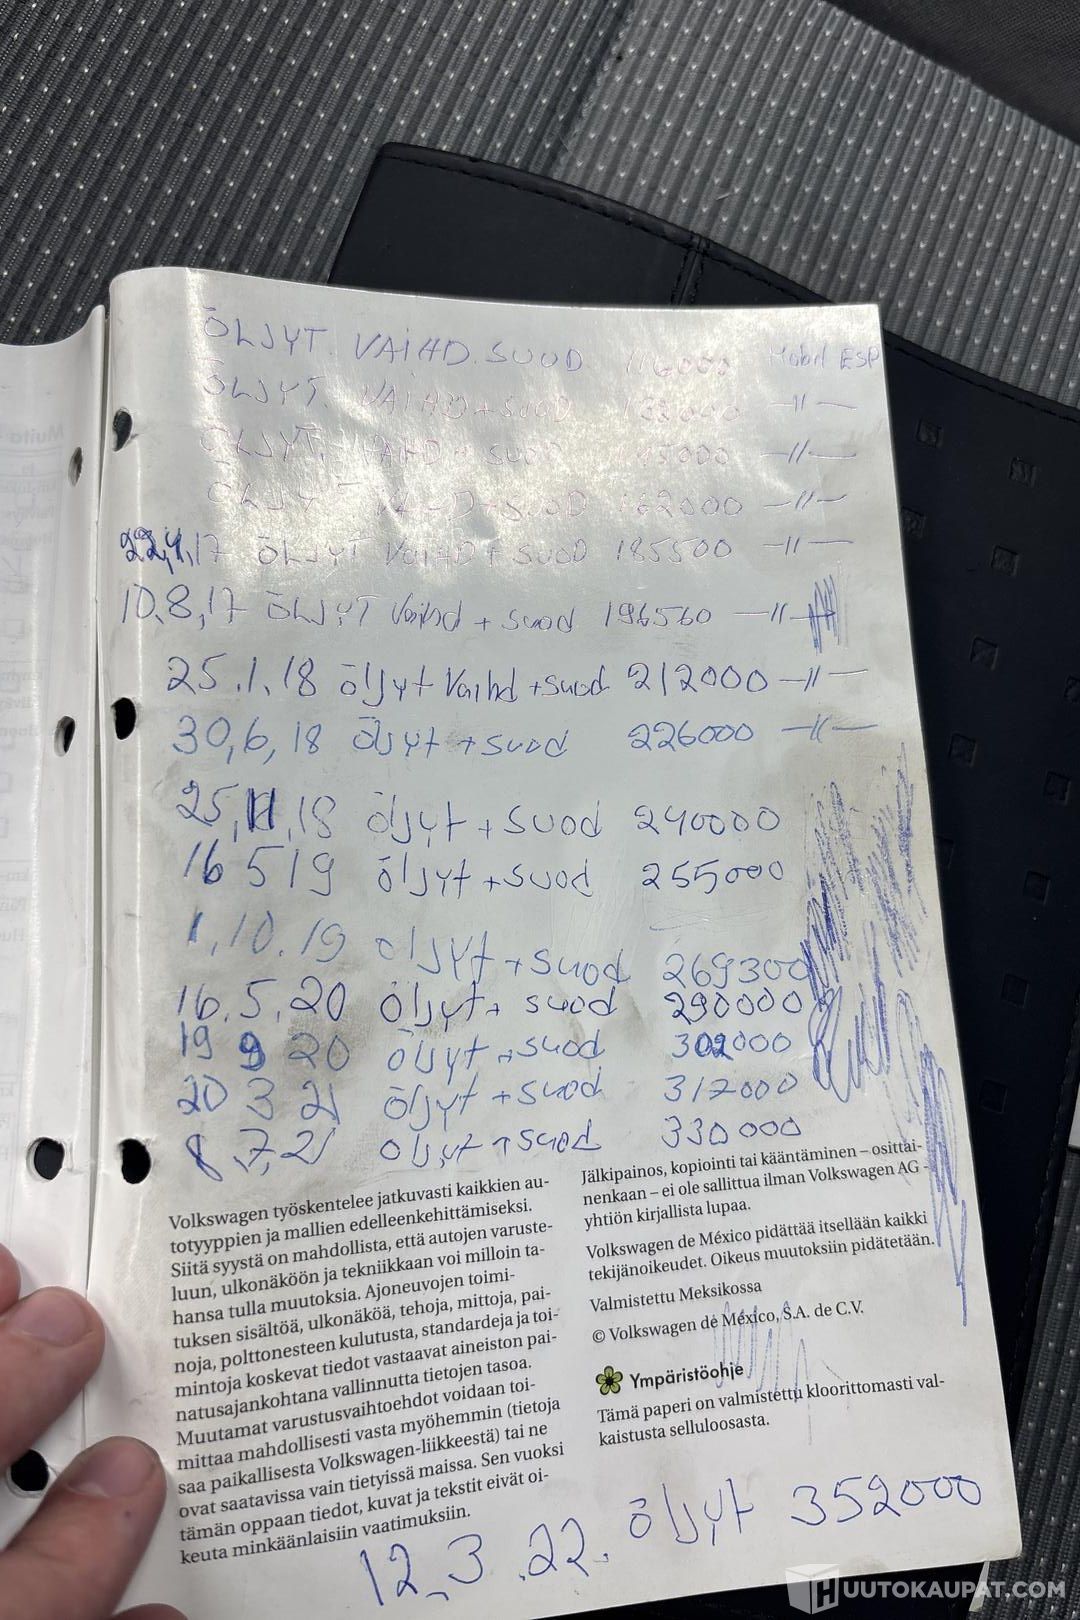 ÖLJYT VAIHD.SUOD 116000 Mobil ESP
ÖLJYT VAIHD+SUOD 132000 —11—
ÖLJYT VAIHD+SUOD 145000 —11—
ÖLJYT VAIHD+SUOD 162000 —11—
22,1,17 ÖLJYT VAIHD+SUOD 185500 —11—
10.8,17 ÖLJYT Vaihd + suod 196560 —11—
25.1.18 öljyt Vaihd +suod 212000 —11—
30,6,18 Öljyt +suod 226000 —11—
25,11,18 öljyt + suod 240000
16 5 19 öljyt +suod 255000
1,10.19 öljyt +suod 269300
16.5.20 öljyt+ suod 290000
19 9 20 öljyt +suod 302000
20 3 21 öljyt +suod 317000
8,7,21 öljyt +suod 330000
Volkswagen työskentelee jatkuvasti kaikkien au-
totyyppien ja mallien edelleenkehittämiseksi.
Siitä syystä on mahdollista, että autojen varuste-
luun, ulkonäköön ja tekniikkaan voi milloin ta-
hansa tulla muutoksia. Ajoneuvojen toimi-
tuksen sisältöä, ulkonäköä, tehoja, mittoja, pai-
noja, polttonesteen kulutusta, standardeja ja toi-
mintoja koskevat tiedot vastaavat aineiston pai-
natusajankohtana vallinnutta tietojen tasoa.
Muutamat varustusvaihtoehdot voidaan toi-
mittaa mahdollisesti vasta myöhemmin (tietoja
saa paikallisesta Volkswagen-liikkeestä) tai ne
ovat saatavissa vain tietyissä maissa. Sen vuoksi
tämän oppaan tiedot, kuvat ja tekstit eivät oi-
keuta minkäänlaisiin vaatimuksiin.
Jälkipainos, kopiointi tai kääntäminen – osittai-
nenkaan – ei ole sallittua ilman Volkswagen AG -
yhtiön kirjallista lupaa.
Volkswagen de México pidättää itsellään kaikki
tekijänoikeudet. Oikeus muutoksiin pidätetään.
Valmistettu Meksikossa
© Volkswagen de México, S.A. de C.V.
Ympäristöohje
Tämä paperi on valmistettu kloorittomasti val-
kaistusta selluloosasta.
12.3.22. öljyt 352000
HUUTOKAUPAT.COM